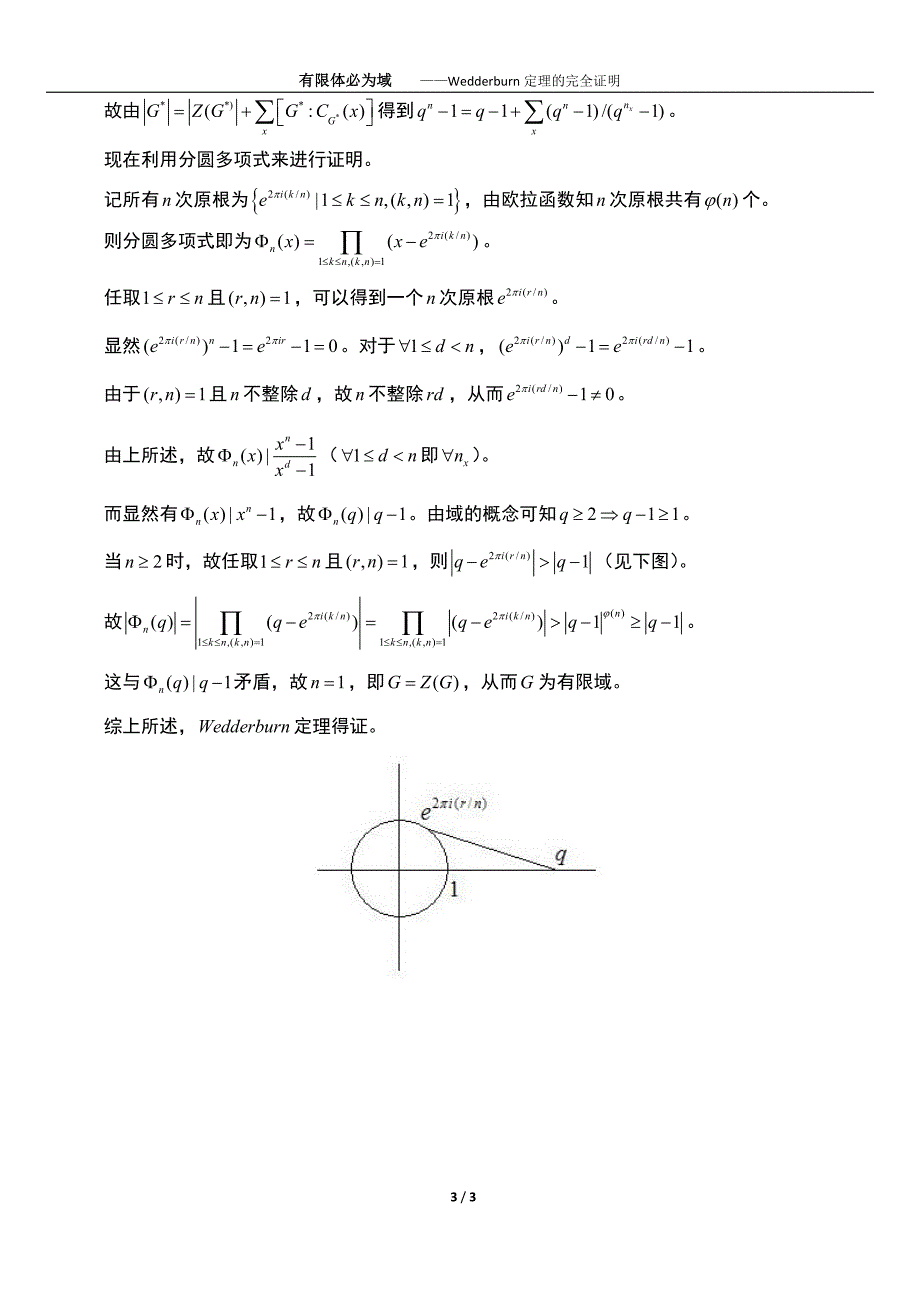 有限体必为域 ——Wedderburn 定理的完全证明
故由|G*|=|Z(G*)|+∑ₓ[G*:C_{G*}(x)]得到qⁿ−1=q−1+∑ₓ(qⁿ−1)/(q^{nₓ}−1)。
现在利用分圆多项式来进行证明。
记所有n次原根为{e^{2πi(k/n)}|1≤k≤n,(k,n)=1}，由欧拉函数知n次原根共有φ(n)个。
则分圆多项式即为Φₙ(x)=∏_{1≤k≤n,(k,n)=1}(x−e^{2πi(k/n)})。
任取1≤r≤n且(r,n)=1，可以得到一个n次原根e^{2πi(r/n)}。
显然(e^{2πi(r/n)})ⁿ−1=e^{2πir}−1=0。对于∀1≤d<n，(e^{2πi(r/n)})^d−1=e^{2πi(rd/n)}−1。
由于(r,n)=1且n不整除d，故n不整除rd，从而e^{2πi(rd/n)}−1≠0。
由上所述，故Φₙ(x)|(xⁿ−1)/(x^d−1)（∀1≤d<n即∀nₓ）。
而显然有Φₙ(x)|xⁿ−1，故Φₙ(q)|q−1。由域的概念可知q≥2⇒q−1≥1。
当n≥2时，故任取1≤r≤n且(r,n)=1，则|q−e^{2πi(r/n)}|>|q−1|（见下图）。
故|Φₙ(q)|=|∏_{1≤k≤n,(k,n)=1}(q−e^{2πi(k/n)})|=∏_{1≤k≤n,(k,n)=1}|(q−e^{2πi(k/n)})|>|q−1|^{φ(n)}≥|q−1|。
这与Φₙ(q)|q−1矛盾，故n=1，即G=Z(G)，从而G为有限域。
综上所述，Wedderburn定理得证。
e^{2πi(r/n)}
q
1
3 / 3